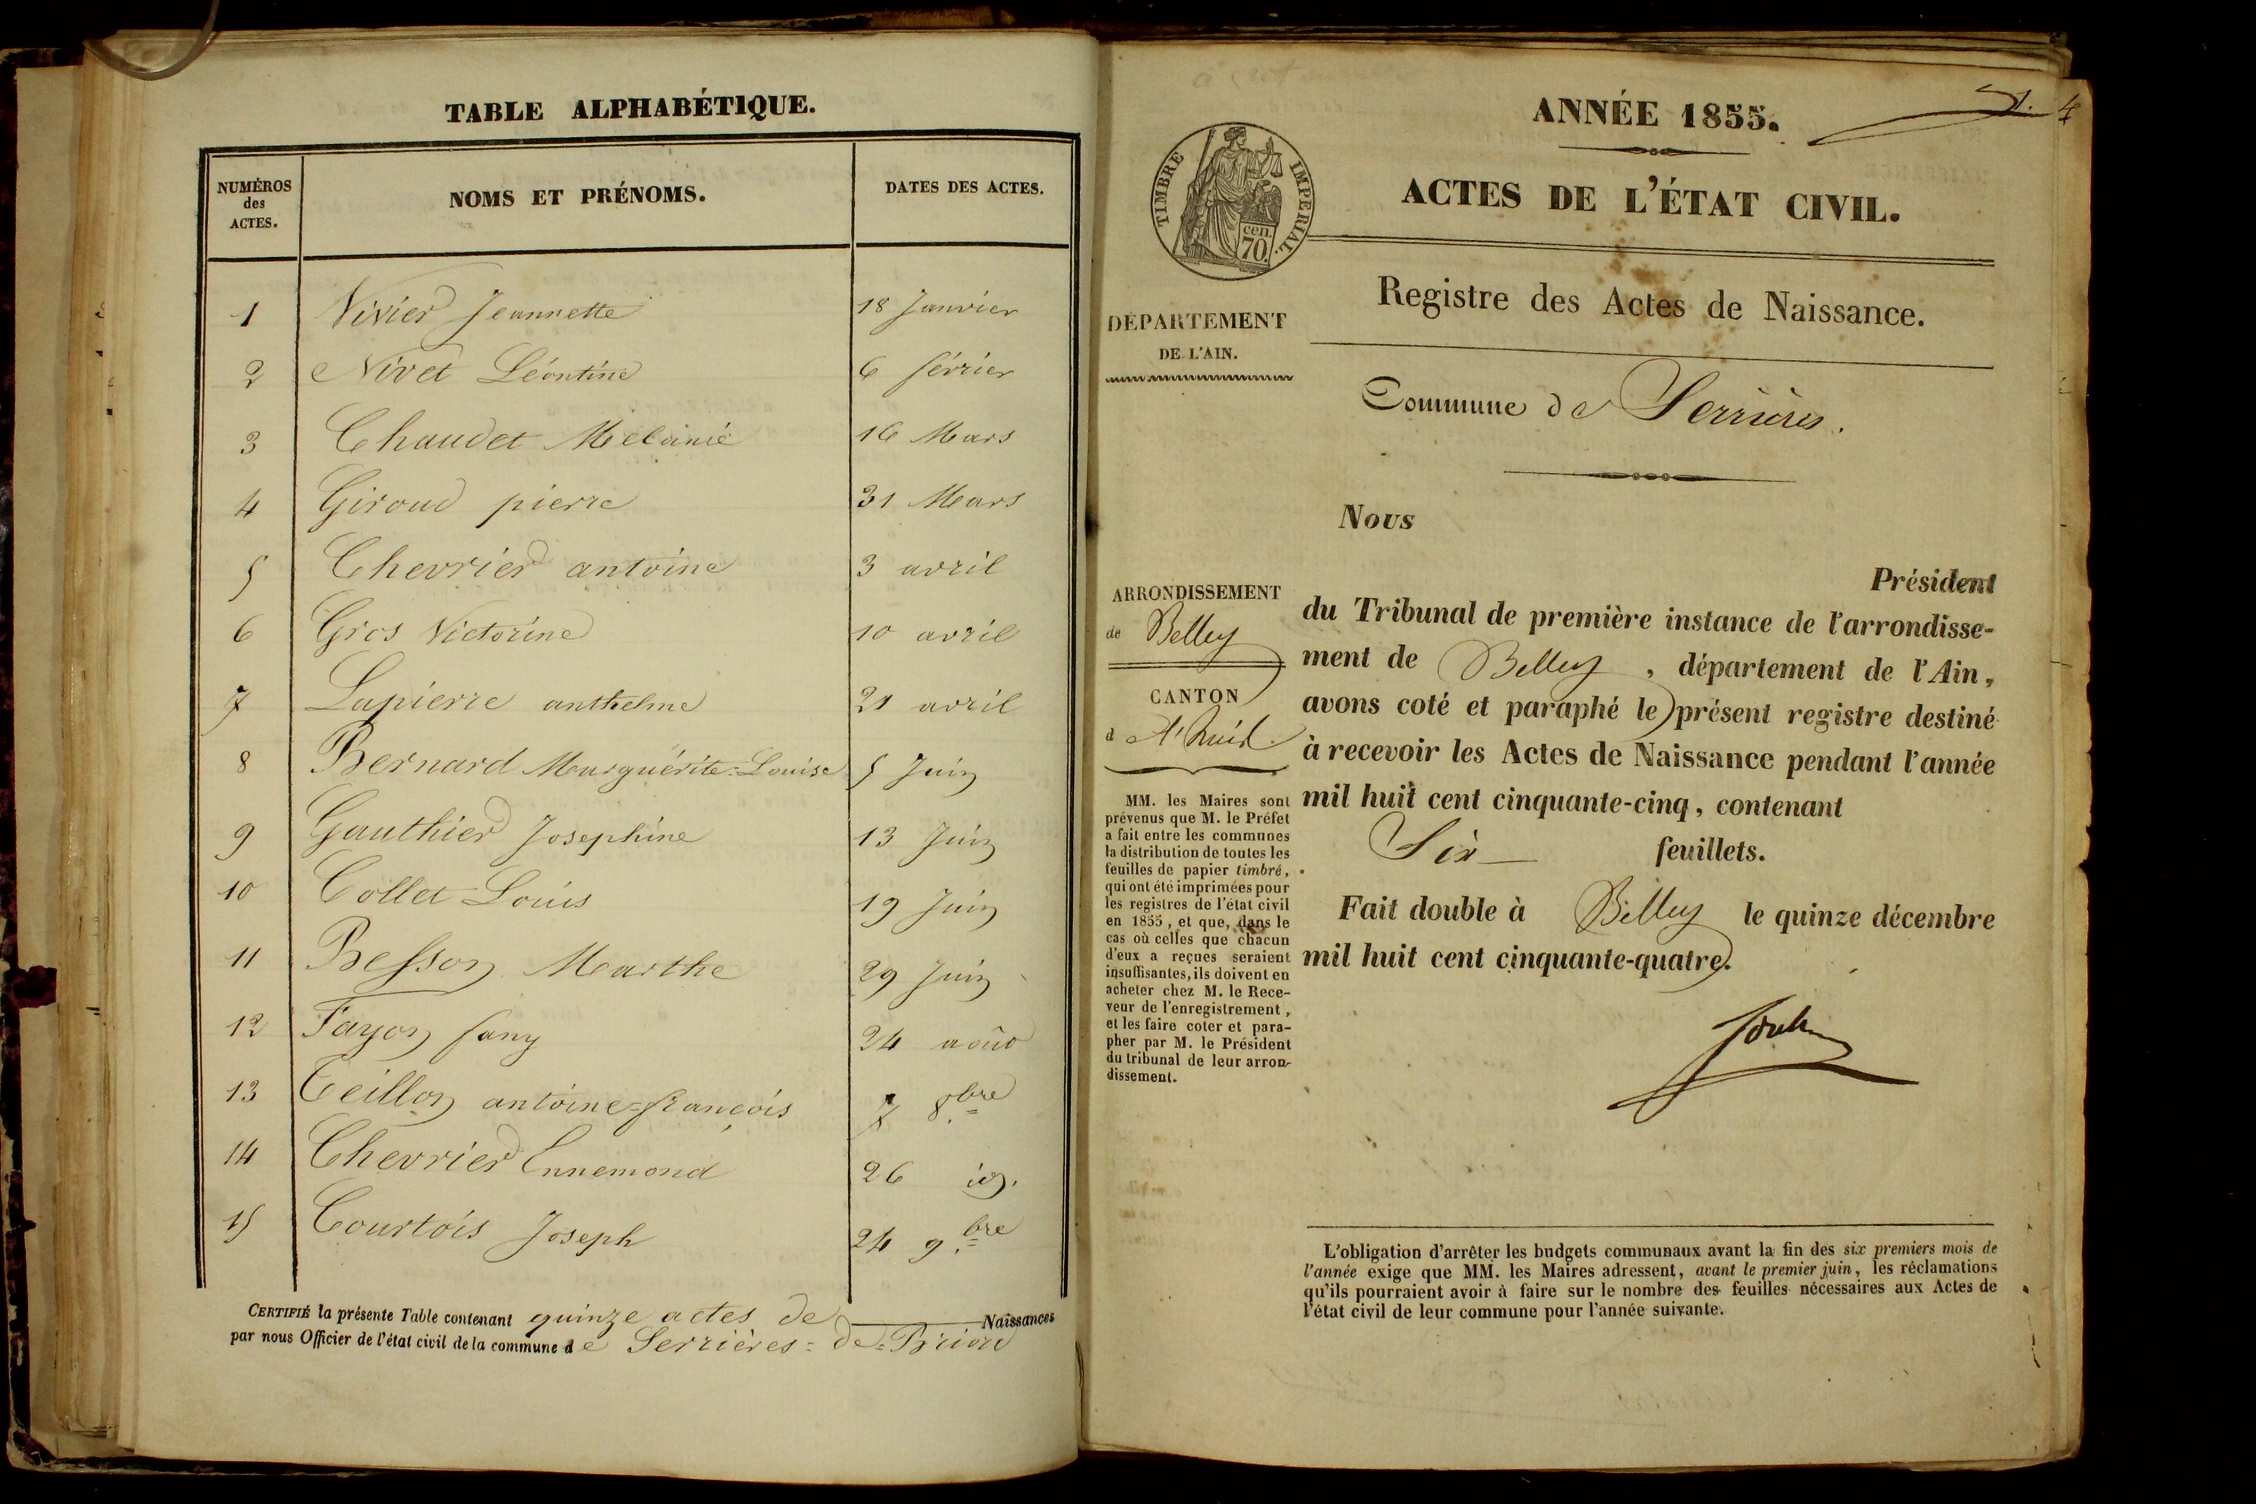 TABLE ALPHABÉTIQUE.
NUMÉROS des ACTES.
NOMS ET PRÉNOMS.
DATES DES ACTES.
1 Vivier Jeannette 18 Janvier
2 Nivet Léontine 6 février
3 Chaudet Mélanie 16 Mars
4 Giroud pierre 31 Mars
5 Chevrier antoine 3 avril
6 Gros Victorine 10 avril
7 Lapierre anthelme 21 avril
8 Bernard Marguérite=Louise 5 Juin
9 Gauthier Josephine 13 Juin
10 Collet Louis 19 Juin
11 Besson Marthe 29 Juin
12 Fayon fany 24 août
13 Teillon antoine=françois 7 8.bre
14 Chevrier Ennemond 26 id.
15 Courtois Joseph 24 9.bre
CERTIFIÉ la présente Table contenant quinze actes de Naissances
par nous Officier de l'état civil de la commune de Serrières=de=Briord
ANNÉE 1855.
TIMBRE IMPERIAL.
cen.
70.
ACTES DE L'ÉTAT CIVIL.
Registre des Actes de Naissance.
DÉPARTEMENT
DE L'AIN.
Commune de Serrières.
Nous
Président
du Tribunal de première instance de l'arrondisse-
ment de Belley, département de l'Ain,
avons coté et paraphé le présent registre destiné
à recevoir les Actes de Naissance pendant l'année
mil huit cent cinquante-cinq, contenant
Six feuillets.
Fait double à Belley le quinze décembre
mil huit cent cinquante-quatre.
ARRONDISSEMENT
de Belley
CANTON
d
MM. les Maires sont
prévenus que M. le Préfet
a fait entre les communes
la distribution de toutes les
feuilles de papier timbré,
qui ont été imprimées pour
les registres de l'état civil
en 1855, et que, dans le
cas où celles que chacun
d'eux a reçues seraient
insuffisantes, ils doivent en
acheter chez M. le Rece-
veur de l'enregistrement,
et les faire coter et para-
pher par M. le Président
du tribunal de leur arron-
dissement.
L'obligation d'arrêter les budgets communaux avant la fin des six premiers mois de
l'année exige que MM. les Maires adressent, avant le premier juin, les réclamations
qu'ils pourraient avoir à faire sur le nombre des feuilles nécessaires aux Actes de
l'état civil de leur commune pour l'année suivante.